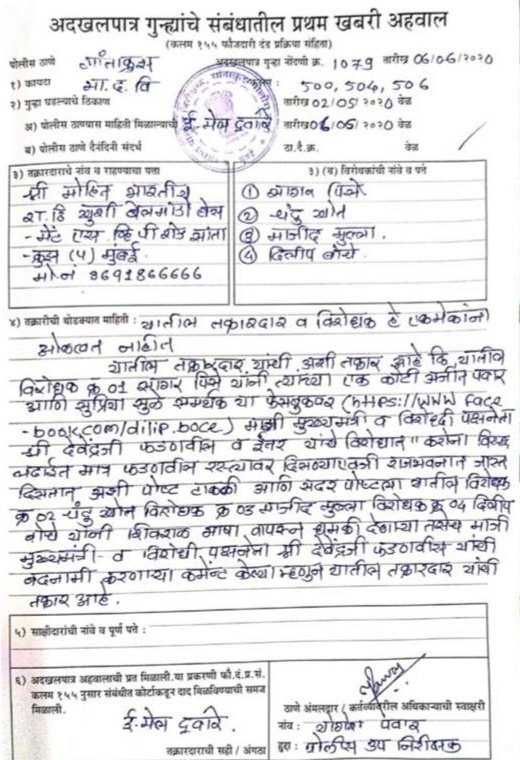 अदखलपात्र गुन्ह्यांचे संबंधातील प्रथम खबरी अहवाल
(कलम १५५ फौजदारी दंड प्रक्रिया संहिता)
पोलीस ठाणे सांताक्रुझ अदखलपात्र गुन्हा नोंदणी क्र. 1079 तारीख 06/06/2020
१) कायदा भा.द.वि कलम : 500, 504, 506
२) गुन्हा घडल्याचे ठिकाण तारीख 02/05/2020 वेळ
अ) पोलीस ठाण्यास माहिती मिळाल्याची ई-मेल द्वारे तारीख 06/06/2020 वेळ
ब) पोलीस ठाणे दैनंदिनी संदर्भ ठा.दै.क्र. वेळ
३) तक्रारदाराचे नांव व राहण्याचा पत्ता
श्री मोहित भारतीय
रा. ठि खुशी बेलमोंडो
- मेंट एस. व्हि पी रोड सांता
- क्रुझ (प) मुंबई
मो.नं 8691866666
३) (ब) विरोधकांची नांवे व पत्ते
① सागर पिसे
② चंदु खोत
③ माजीद मुल्ला.
④ दिलीप बोचे
४) तक्रारीची थोडक्यात माहिती : यातील तक्रारदार व विरोधक हे एकमेकांना
ओळखत नाहीत
यातील तक्रारदार यांची अशी तक्रार आहे कि, यातील
विरोधक क्र 01 सागर पिसे यांनी त्याच्या एक कोटी अजीत पवार
आणि सुप्रिया सुळे समर्थक या फेसबुकवर (https://www face
-book.com/dilip.boce) माजी मुख्यमंत्री व विरोधी पक्षनेता
श्री देवेंद्रजी फडणवीस व ईतर यांचे विरोधात " करोना विरुद्ध
लढाईत मात्र फडणवीस रस्त्यावर दिसण्याएवजी राजभवनात जास्त
दिसतात अशी पोष्ट टाकली आणि सदर पोष्टला यातील विरोधक
क्र 02 चंदु खोत विरोधक क्र 03 माजीद मुल्ला विरोधक क्र 04 दिलीप
बोचे यांनी शिवराळ भाषा वापरून धमकी देणाऱ्या तसेच माजी
मुख्यमंत्री व विरोधी पक्षनेता श्री देवेंद्रजी फडणवीस यांची
बदनामी करणाऱ्या कमेन्ट केल्या म्हणुन यातील तक्रारदार यांची
तक्रार आहे.
५) साक्षीदारांची नांवे व पूर्ण पत्ते :
६) अदखलपात्र अहवालाची प्रत मिळाली. या प्रकरणी फौ.दं.प्र.सं.
कलम १५५ नुसार संबंधीत कोर्टाकडून दाद मिळविण्याची समज
मिळाली.
ई-मेल द्वारे.
तक्रारदाराची सही / अंगठा
ठाणे अंमलदार / कर्तव्यावरील अधिकाऱ्याची स्वाक्षरी
नांव : योगेश पवार
हुद्दा : पोलीस उप निरीक्षक